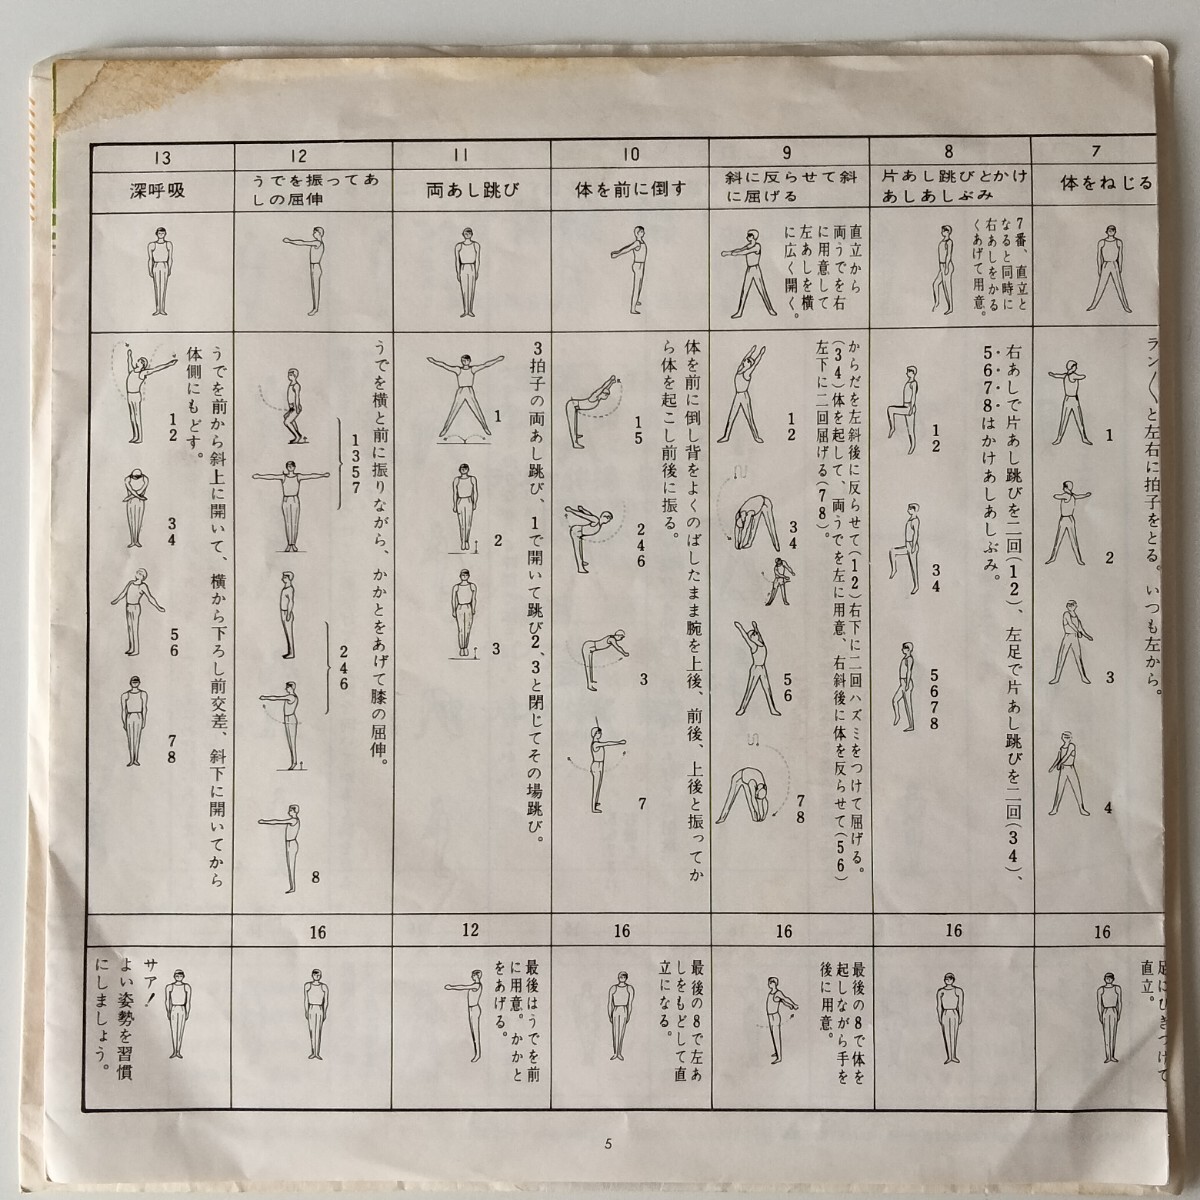 7
体をねじる
ラン〱と左右に拍子をとる。いつも左から。
1
2
3
4
16
直立。
8
片あし跳びとかけ
あしあしぶみ
7番、直立と
なると同時に
右あしをかる
くあげて用意。
右あしで片あし跳びを二回(12)、左足で片あし跳びを二回(34)、
5678はかけあしあしぶみ。
12
34
5678
16
9
斜に反らせて斜
に屈げる
直立から
両うでを右
に用意して
左あしを横
に広く開く。
からだを左斜後に反らせて(12)右下に二回ハズミをつけて屈げる。
(34)体を起して、両うでを左に用意、右斜後に体を反らせて(56)
左下に二回屈げる(78)。
12
34
56
78
16
最後の8で体を
起しながら手を
後に用意。
10
体を前に倒す
体を前に倒し背をよくのばしたまま腕を上後、前後、上後と振ってか
ら体を起こし前後に振る。
15
246
3
7
16
最後の8で左あ
しをもどして直
立になる。
11
両あし跳び
3拍子の両あし跳び、1で開いて跳び2、3と閉じてその場跳び。
1
2
3
12
最後はうでを前
に用意。かかと
をあげる。
12
うでを振ってあ
しの屈伸
うでを横と前に振りながら、かかとをあげて膝の屈伸。
1357
246
8
16
13
深呼吸
うでを前から斜上に開いて、横から下ろし前交差、斜下に開いてから
体側にもどす。
12
34
56
78
サア!
よい姿勢を習慣
にしましょう。
5